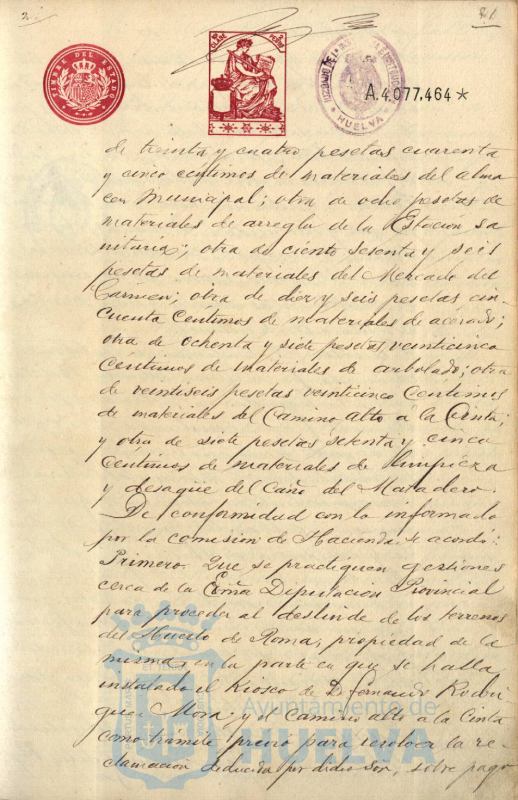 21
TIMBRE DEL ESTADO
CLASE
HUELVA
A.4.077.464 *
de treinta y cuatro pesetas cuarenta
y cinco centimos de materiales del alma
cen Municipal; otra de ocho pesetas de
materiales de arreglo de la Estación sa
nitaria; otra de ciento sesenta y seis
pesetas de materiales del Mercado del
Carmen; otra de diez y seis pesetas cin-
cuenta centimos de materiales de acerado;
otra de ochenta y siete pesetas veinticinco
centimos de materiales de arbolado; otra
de veintiseis pesetas veinticinco centimos
de materiales del Camino alto á la Cinta;
y otra de siete pesetas setenta y cinco
centimos de materiales de limpieza
y desagüe del Caño del Matadero.
De conformidad con lo informado
por la comision de Hacienda se acordó:
Primero. Que se practiquen gestiones
cerca de la Exma Diputación Provincial
para proceder al deslinde de los terrenos
del Huerto de Roma, propiedad de la
misma, en la parte en que se halla
instalado el Kiosco de D. Fernando Rodri
guez Mora, y el Camino alto a la Cinta
como tramite previo para resolver la re-
clamación deducida por dicho Sor, sobre pago
Ayuntamiento de
HUELVA